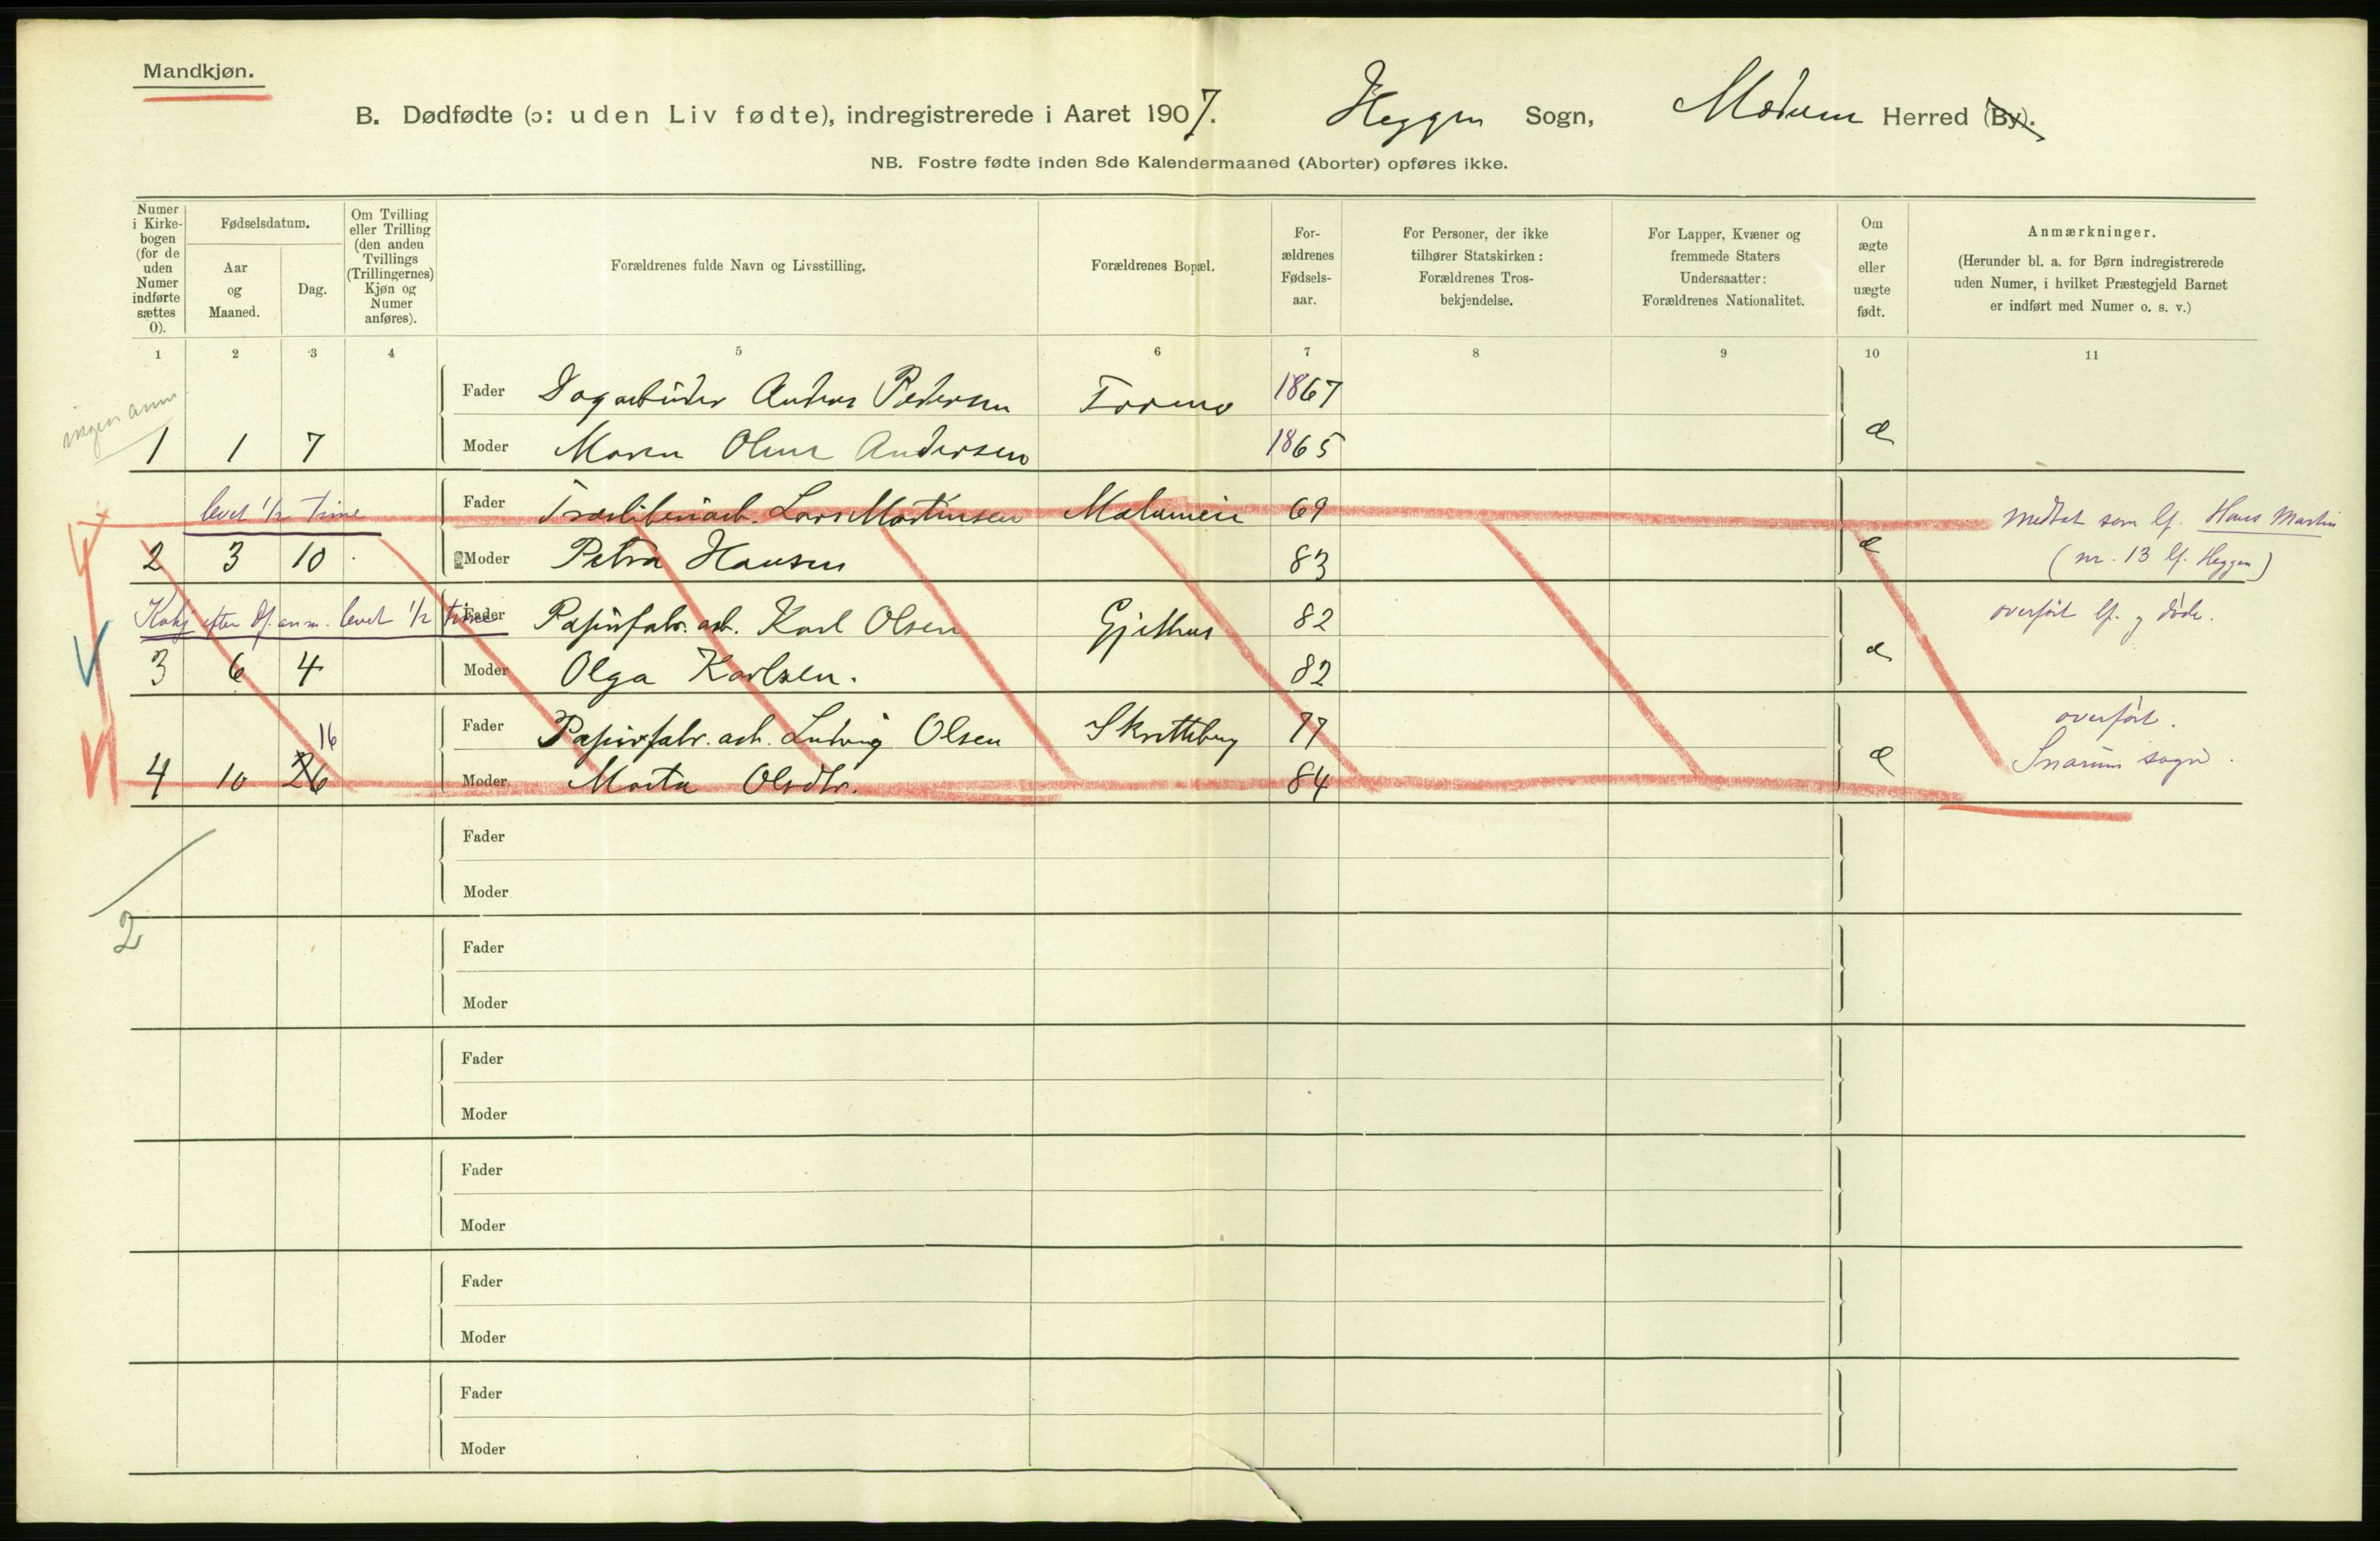 Mandkjøn.
B. Dødfødte (ɔ: uden Liv fødte), indregistrerede i Aaret 1907. Heggen Sogn, Modum Herred (By).
NB. Fostre fødte inden 8de Kalendermaaned (Aborter) opføres ikke.
Numer i Kirkebogen (for de uden Numer indførte sættes 0).
Fødselsdatum.
Aar og Maaned.
Dag.
Om Tvilling eller Trilling (den anden Tvillings (Trillingernes) Kjøn og Numer anføres).
Forældrenes fulde Navn og Livsstilling.
Forældrenes Bopæl.
Forældrenes Fødselsaar.
For Personer, der ikke tilhører Statskirken: Forældrenes Trosbekjendelse.
For Lapper, Kvæner og fremmede Staters Undersaatter: Forældrenes Nationalitet.
Om ægte eller uægte født.
Anmærkninger.
(Herunder bl. a. for Børn indregistrerede uden Numer, i hvilket Præstegjeld Barnet er indført med Numer o. s. v.)
1 2 3 4 5 6 7 8 9 10 11
ingen anm
Fader Dagarbeider Anders Pedersen 1867
1 1 7 Moder Maren Oline Andersen 1865 æ
levet 1/2 Time Fader Lars Martinsen 69 medtat som lf. Hans Martin
2 3 10 Moder Petra Hansen 83 æ (nr. 13 lf. Heggen)
efter df. anm. levet 1/2 time Fader Papirfabr. arb. Karl Olsen Gjethus 82 overført lf. og døde.
3 6 4 Moder Olga Karlsen. 82 æ
16 Fader Papirfabr. arb. Ludvig Olsen 77 overført.
4 10 26 Moder Marta Olsdtr. 84 æ Snarum sogn.
Fader
Moder
2
Fader
Moder
Fader
Moder
Fader
Moder
Fader
Moder
Fader
Moder